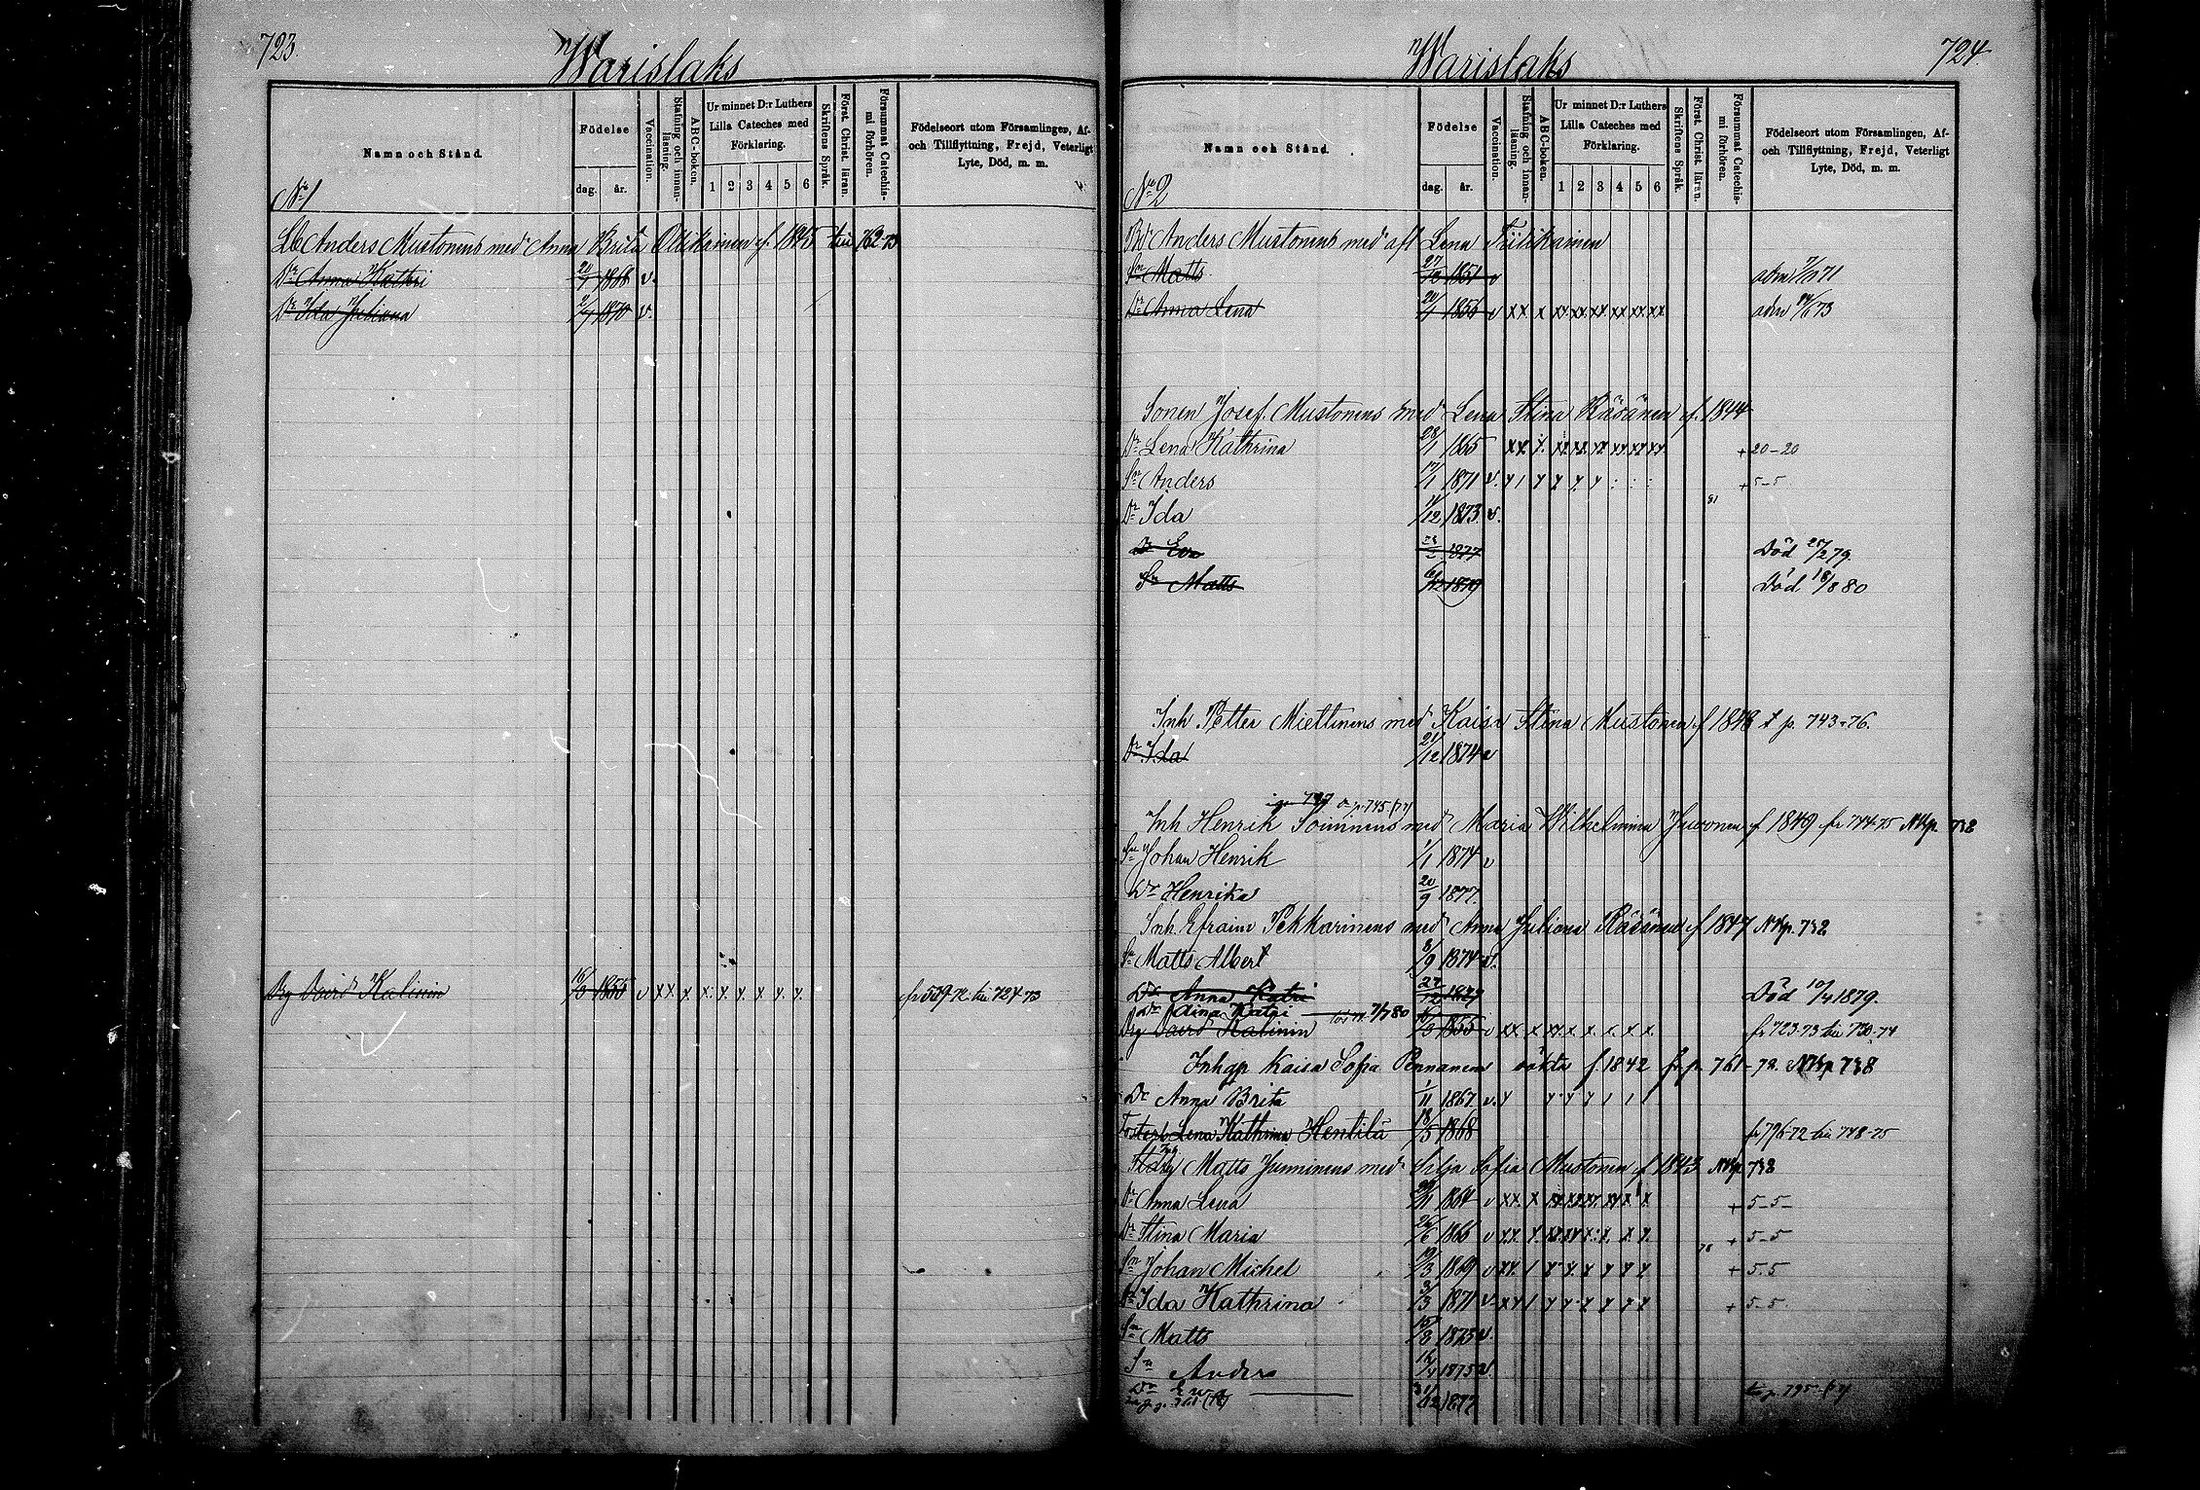 723.
Warislaks
Namn och Stånd.
Födelse
dag. år.
Vaccination.
Stafning och innanläsning.
ABC-boken.
Ur minnet D:r Luthers Lilla Cateches med Förklaring.
1 2 3 4 5 6
Skriftens Språk.
Först. Christ. läran.
Försummat Catechismi förhören.
Födelseort utom Församlingen, Af- och Tillflyttning, Frejd, Veterligt Lyte, Död, m. m.
No 1
Anders Mustonens med Anna Brita Ollikainen f. 1845 till 762-73
Dr Anna Kathri 20/7 1868 v.
Dr Ida Juliana 2/7 1870 v.
Dg David Kalinin 16/3 1855 v xx x x. x. x. x x. x. fr 539-72 till 724-73
Warislaks
724.
Namn och Stånd.
Födelse
dag. år.
Vaccination.
Stafning och innanläsning.
ABC-boken.
Ur minnet D:r Luthers Lilla Cateches med Förklaring.
1 2 3 4 5 6
Skriftens Språk.
Först. Christ. läran.
Försummat Catechismi förhören.
Födelseort utom Församlingen, Af- och Tillflyttning, Frejd, Veterligt Lyte, Död, m. m.
No 2
Anders Mustonens med afl Lena
Sn Matts 1851 v adm 71
Dr Anna Lena 1856 v xx x xx xx xx xx xx xx adm 73
Sonen Josef Mustonens med Lena Stina Räsänen f. 1844
Dr Lena Kathrina 28/1 1865 xx x. xx xx xx xx xx xx + 20-20
Sn Anders 17/1 1871 v. + 5-5
81
Dr Ida 11/12 1873 v.
Dr Eva 1877 Död 25/2 79.
Sn Matts 6/12 1879 Död 18/8 80
Inh Petter Miettinens med Kaisa Stina Mustonen f 1848 t p. 743-76.
Dr Ida 21/12 1874 v
p 745 (77)
Inh Henrik Soininens med Maria Wilhelmina Juvonen f 1849 fr 744-75 Nkp. 738
Sn Johan Henrik 1/1 1874 v
Dr Henrika 20/9 1877.
Inh. Efraim Pekkarinens med Anna Juliana Räsänen f 1847 Nkp. 732
Sn Matts Albert 8/9 1874 v.
Dr Anna Katri 27/12 1877 Död 10/4 1879.
Dr Aina Katri 7/7 80
Dg David Kalinin 16/3 1855 v xx x xx x x. x. x. x. fr 723-73 till 730-74
Inhqp Kaisa Sofia Pennanens oäkta f. 1842 fr p. 761-72. Nkp 738
Dr Anna Brita 1/11 1867 v.
Fosterb Lena Kathrina Hentilä 18/5 1868 fr 796-72 till 748-75
Matts Junninens med Silja Sofia Mustonen f 1843 Nkp. 738
Dr Anna Lena 1864 v xx. x + 5-5-
Dr Stina Maria 26/6 1866 v + 5-5
78
Sn Johan Michel 19/3 1869 v xx. + 5.5
Dr Ida Kathrina 3/3 1871 v. + 5-5.
Sn Matts 15/3 1873 v.
Sn Anders 1875 v.
Dr Ewa 31/12 1877 p. 795